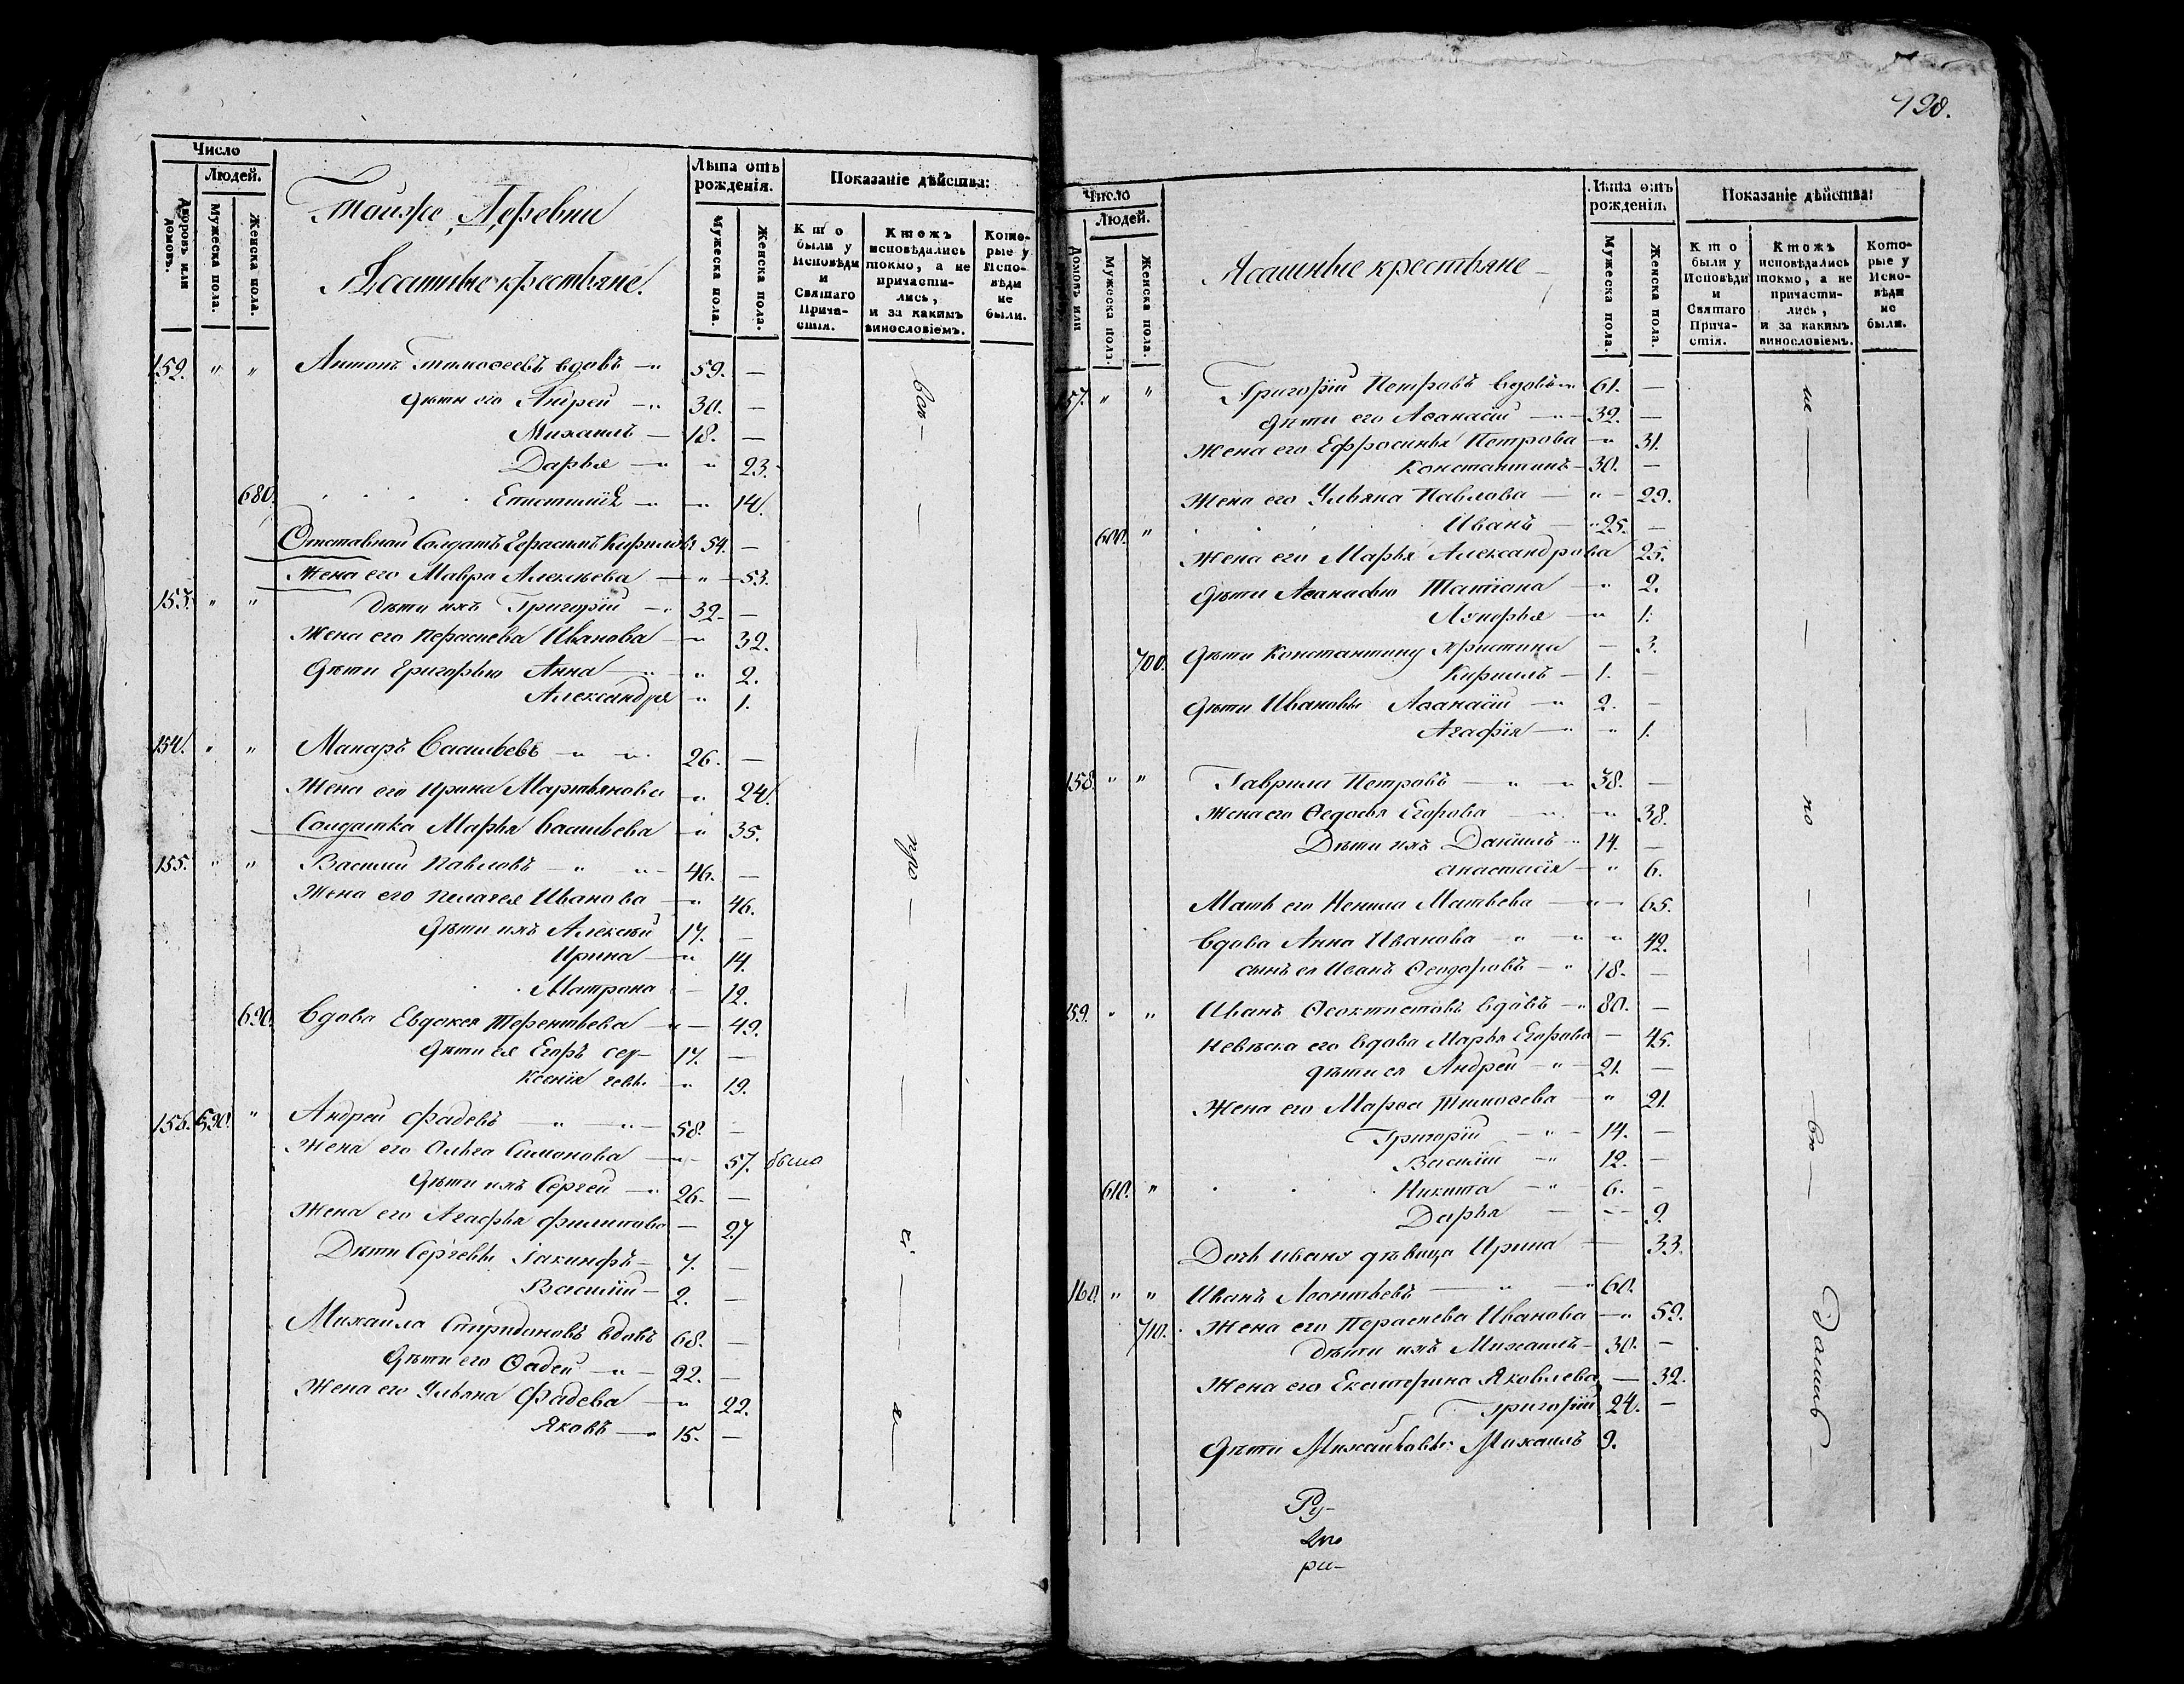 Число
Людей.
Дворовъ или домовъ.
Мужеска пола.
Женска пола.
Тойже Деревни
Ясашные крестьяне.
Лѣта отъ рожденія.
Мужеска пола.
Женска пола.
Показаніе дѣйства:
Кто были у Исповѣди и Святаго Причастія.
Ктожъ исповѣдались токмо, а не причастились, и за какимъ винословіемъ.
Которые у Исповѣди не были.
152. " " Антонъ Тимоѳеевъ вдовъ 59. —
дѣти его Андрей 30. —
Михаилъ 18. —
Дарья " 23.
680. 14.
Отставной Солдатъ Герасимъ Кириловъ 54. —
Жена его Мавра Алексѣева " 53.
153. " " дѣти ихъ Григорій 32. —
Жена его Параскева Иванова " 32.
Дѣти Григорью Анна " 2.
Александра " 1.
154. " " Макаръ Васильевъ 26. —
Жена его Ирина Мартьянова " 24.
Солдатка Марья Васильева " 35.
155. " " Василій Павловъ 46. —
Жена его Пелагея Иванова " 46.
Дѣти ихъ Алексѣй 17. —
Ирина " 14.
Матрона — 12.
690. Вдова Евдокея Терентьева " 49.
Дѣти ея Егоръ 17. —
Ксенія " 19.
156. 590. " Андрей Фадеевъ 58. —
Жена его Ольга Симонова " 57. была
Дѣти ихъ Сергей 26. —
Жена его Агафья Филипова — 27
Дѣти Сергевы Іакинфъ 7. —
Василій 2. —
Михаила Спиридоновъ вдовъ 68. —
Дѣти его Фадей 22. —
Жена его Ульяна Фадева " 22.
Яковъ 15. —
всѣ
про
928.
Число
Людей.
Домовъ или
Мужеска пола.
Женска пола.
Ясашные крестьяне
Лѣта отъ рожденія.
Мужеска пола.
Женска пола.
Показаніе дѣйства:
Кто были у Исповѣди и Святаго Причастія.
Ктожъ исповѣдались токмо, а не причастились, и за какимъ винословіемъ.
Которые у Исповѣди не были.
157. " " Григорій Петровъ вдовъ 61. —
дѣти его Аѳанасій 32. —
Жена его Ефросинья Петрова " 31.
Константинъ 30. —
Жена его Ульяна Павлова " 29.
600. " Иванъ 25. —
Жена его Марья Александрова 25.
Дѣти Аѳанасью Татіана " 2.
1.
700. Дѣти Константину Христина — 3.
Кириллъ 1. —
Дѣти Ивановы Аѳанасій 2. —
Агафія " 1.
158. " " Гаврила Петровъ 38. —
Жена его Ѳедосья Егорова " 38.
Дѣти ихъ Даніилъ 14. —
Анастасія " 6.
Мать его Ненила Матвева 65.
Вдова Анна Иванова " 42.
сынъ ея Иванъ Ѳеодоровъ 18. —
159. " " Иванъ Ѳеоктистовъ вдовъ 80. —
Невѣска его вдова Марья Егорова — 45.
дѣти ея Андрей 21. —
Жена его Марѳа Тимоѳева " 21.
Григорій 14. —
Василій 12. —
610. " Никита 6. —
Дарья 9.
Дочь Ивана дѣвица Ирина — 33.
160. " " Иванъ Леонтьевъ 60.
710. Жена его Параскева Иванова 59.
Дѣти ихъ Михаилъ 30. —
Жена его Екатерина Яковлева — 32.
Григорій 24. —
Дѣти Михайловы Михаилъ 9.
но
Ру-
ри-